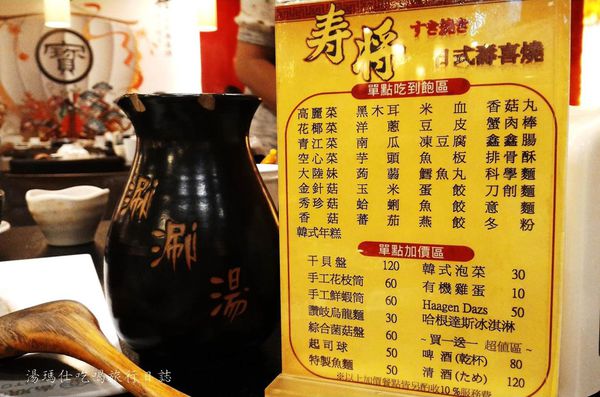 寶
涮涮湯
寿将 すき焼き
日式壽喜燒
單點吃到飽區
高麗菜 黑木耳 米血 香菇丸
花椰菜 洋蔥 豆皮 蟹肉棒
青江菜 南瓜 凍豆腐 鑫鑫腸
空心菜 芋頭 魚板 排骨酥
大陸妹 蒟蒻 鱈魚丸 科學麵
金針菇 玉米 蛋餃 刀削麵
秀珍菇 蛤蜊 魚餃 意麵
香菇 蕃茄 燕餃 冬粉
韓式年糕
單點加價區
干貝盤 120 韓式泡菜 30
手工花枝筒 60 有機雞蛋 10
手工鮮蝦筒 60 Haagen Dazs 50
讚岐烏龍麵 30 哈根達斯冰淇淋
綜合菌菇盤 60 ~買一送一 超值區~
起司球 50 啤酒(乾杯) 80
特製魚麵 50 清酒(ため) 120
※以上加價餐點皆另酌收10%服務費
湯瑪仕吃喝旅行日誌